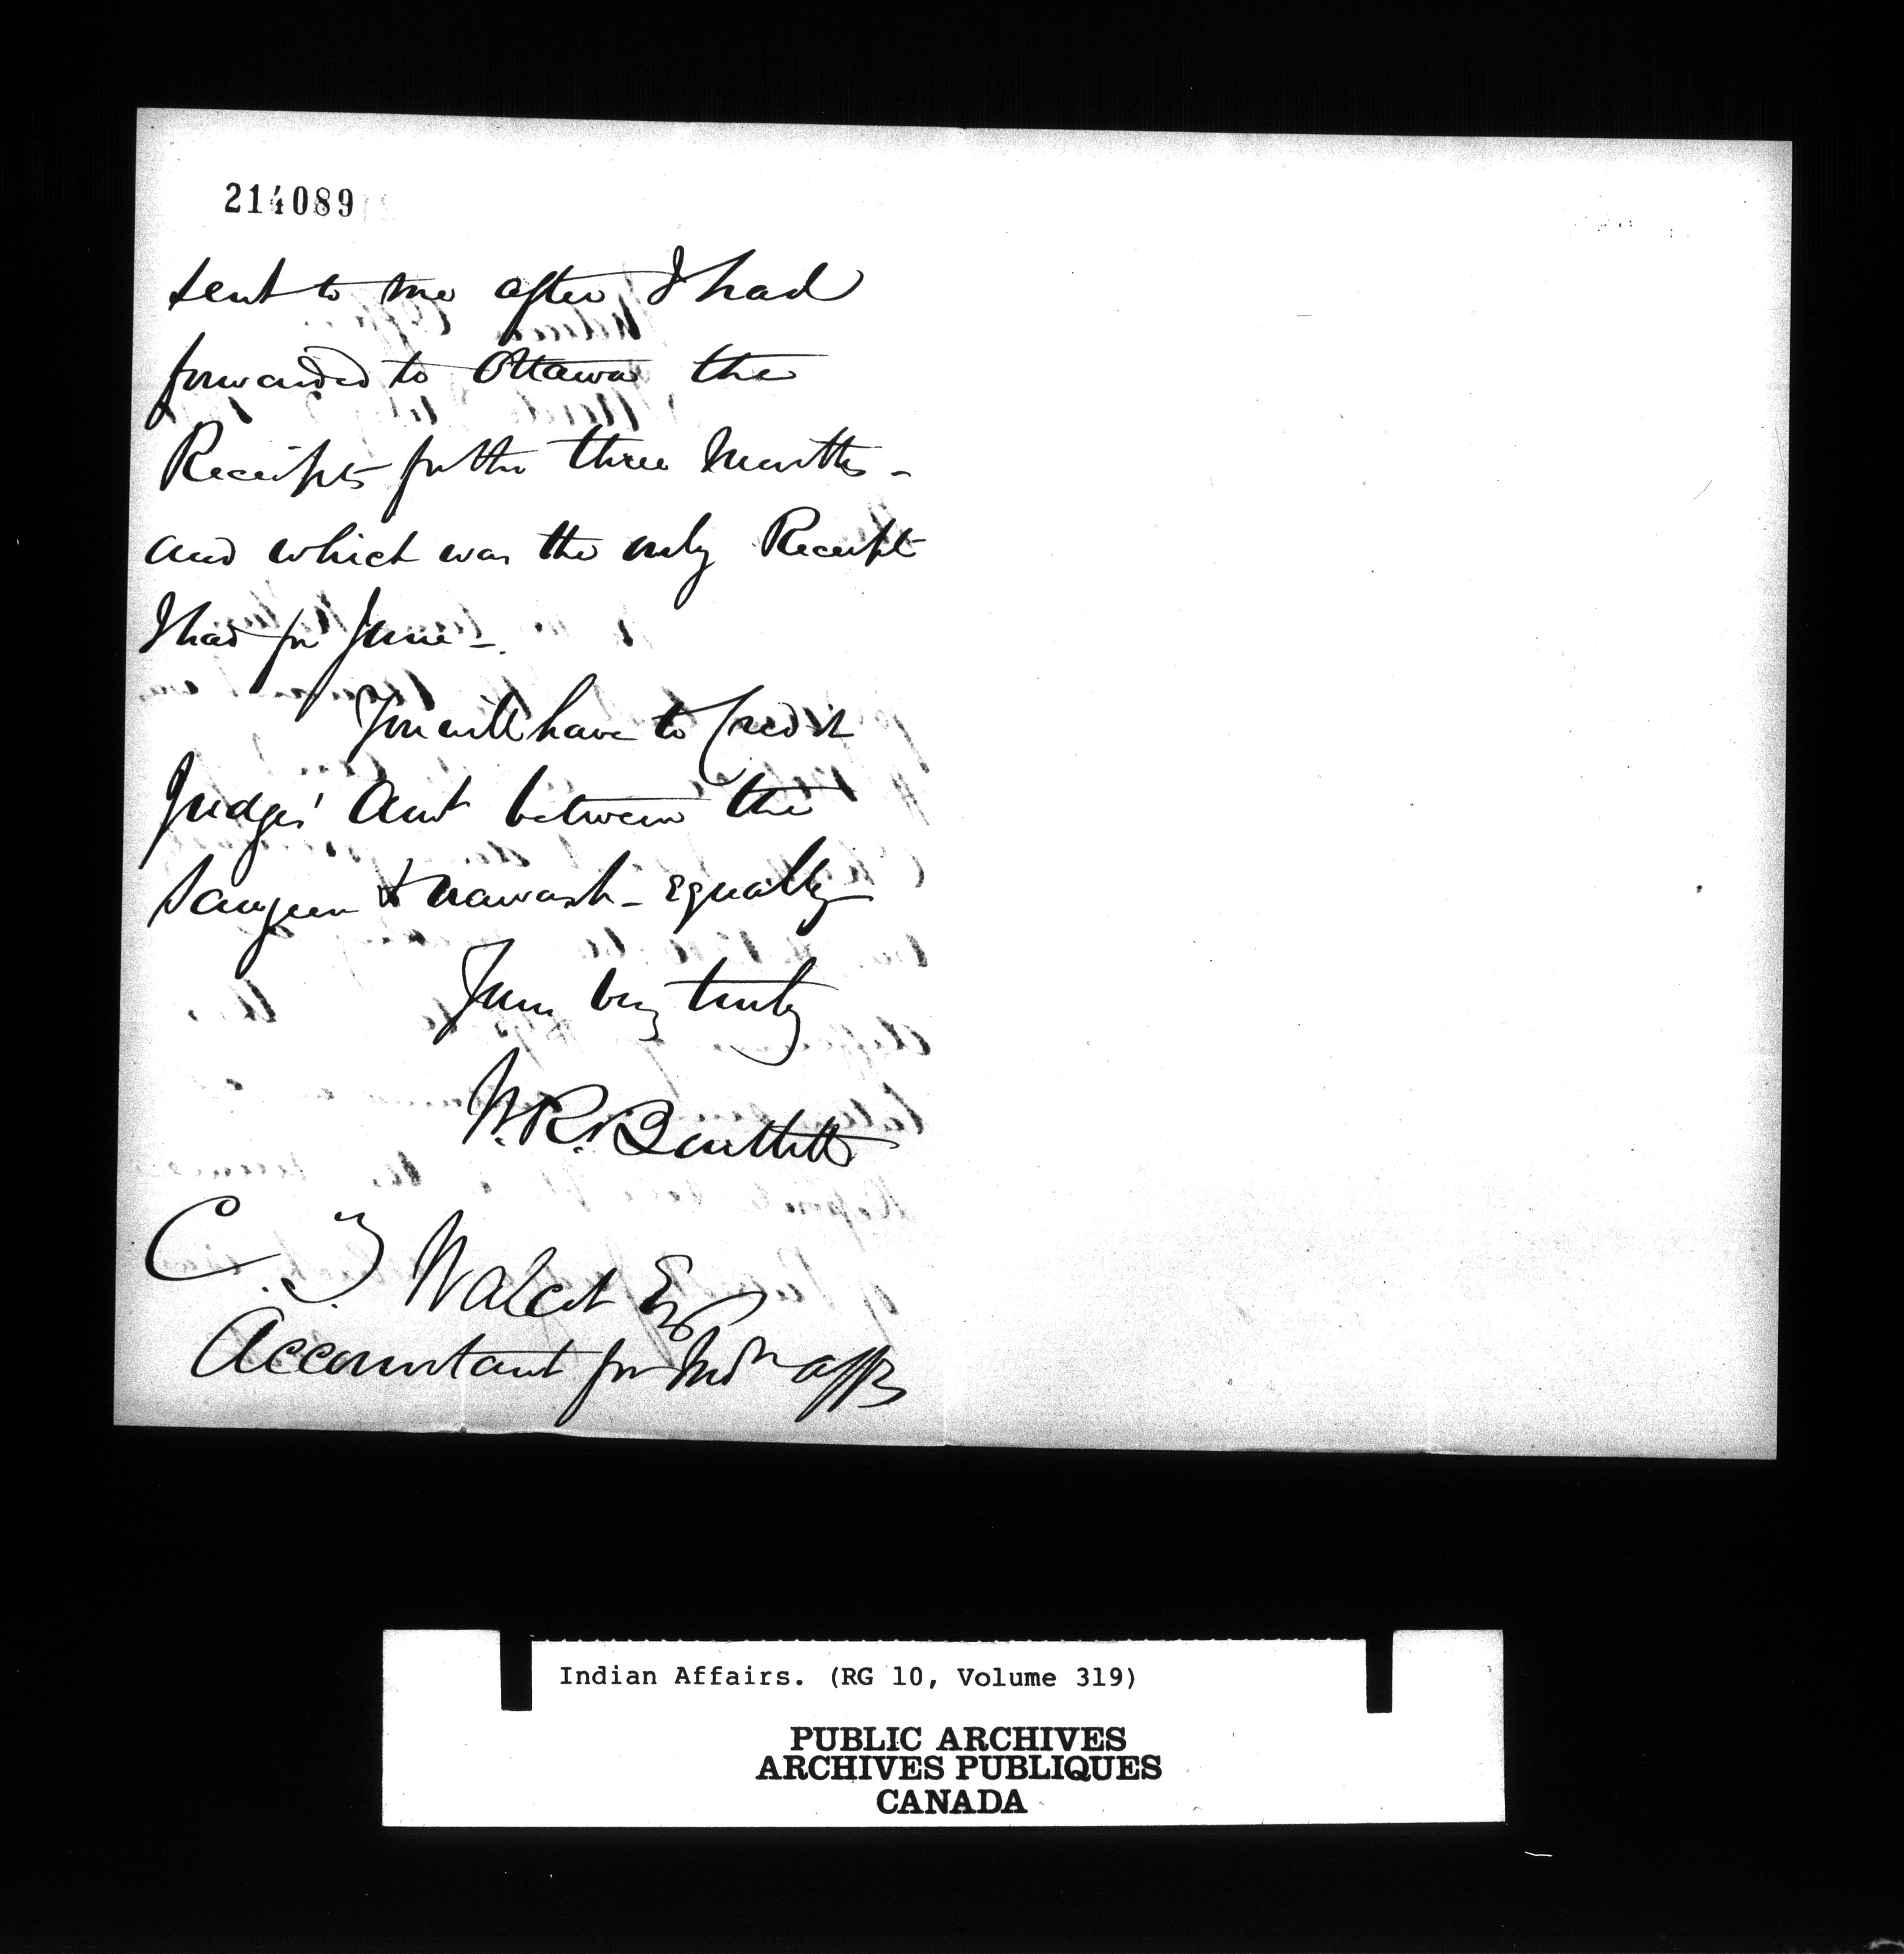 214089
sent to me after I had
forwarded to Ottawa the
Receipts for the three Months -
and which was the only Receipt
I had for June -.
You will have to Credit
Judges' Amt between the
Saugeen & Nawash - equally
Yours very truly
W. R. Bartlett
C. T. Walcot Esq
Accountant for Indn affrs
Indian Affairs. (RG 10, Volume 319)
PUBLIC ARCHIVES
ARCHIVES PUBLIQUES
CANADA